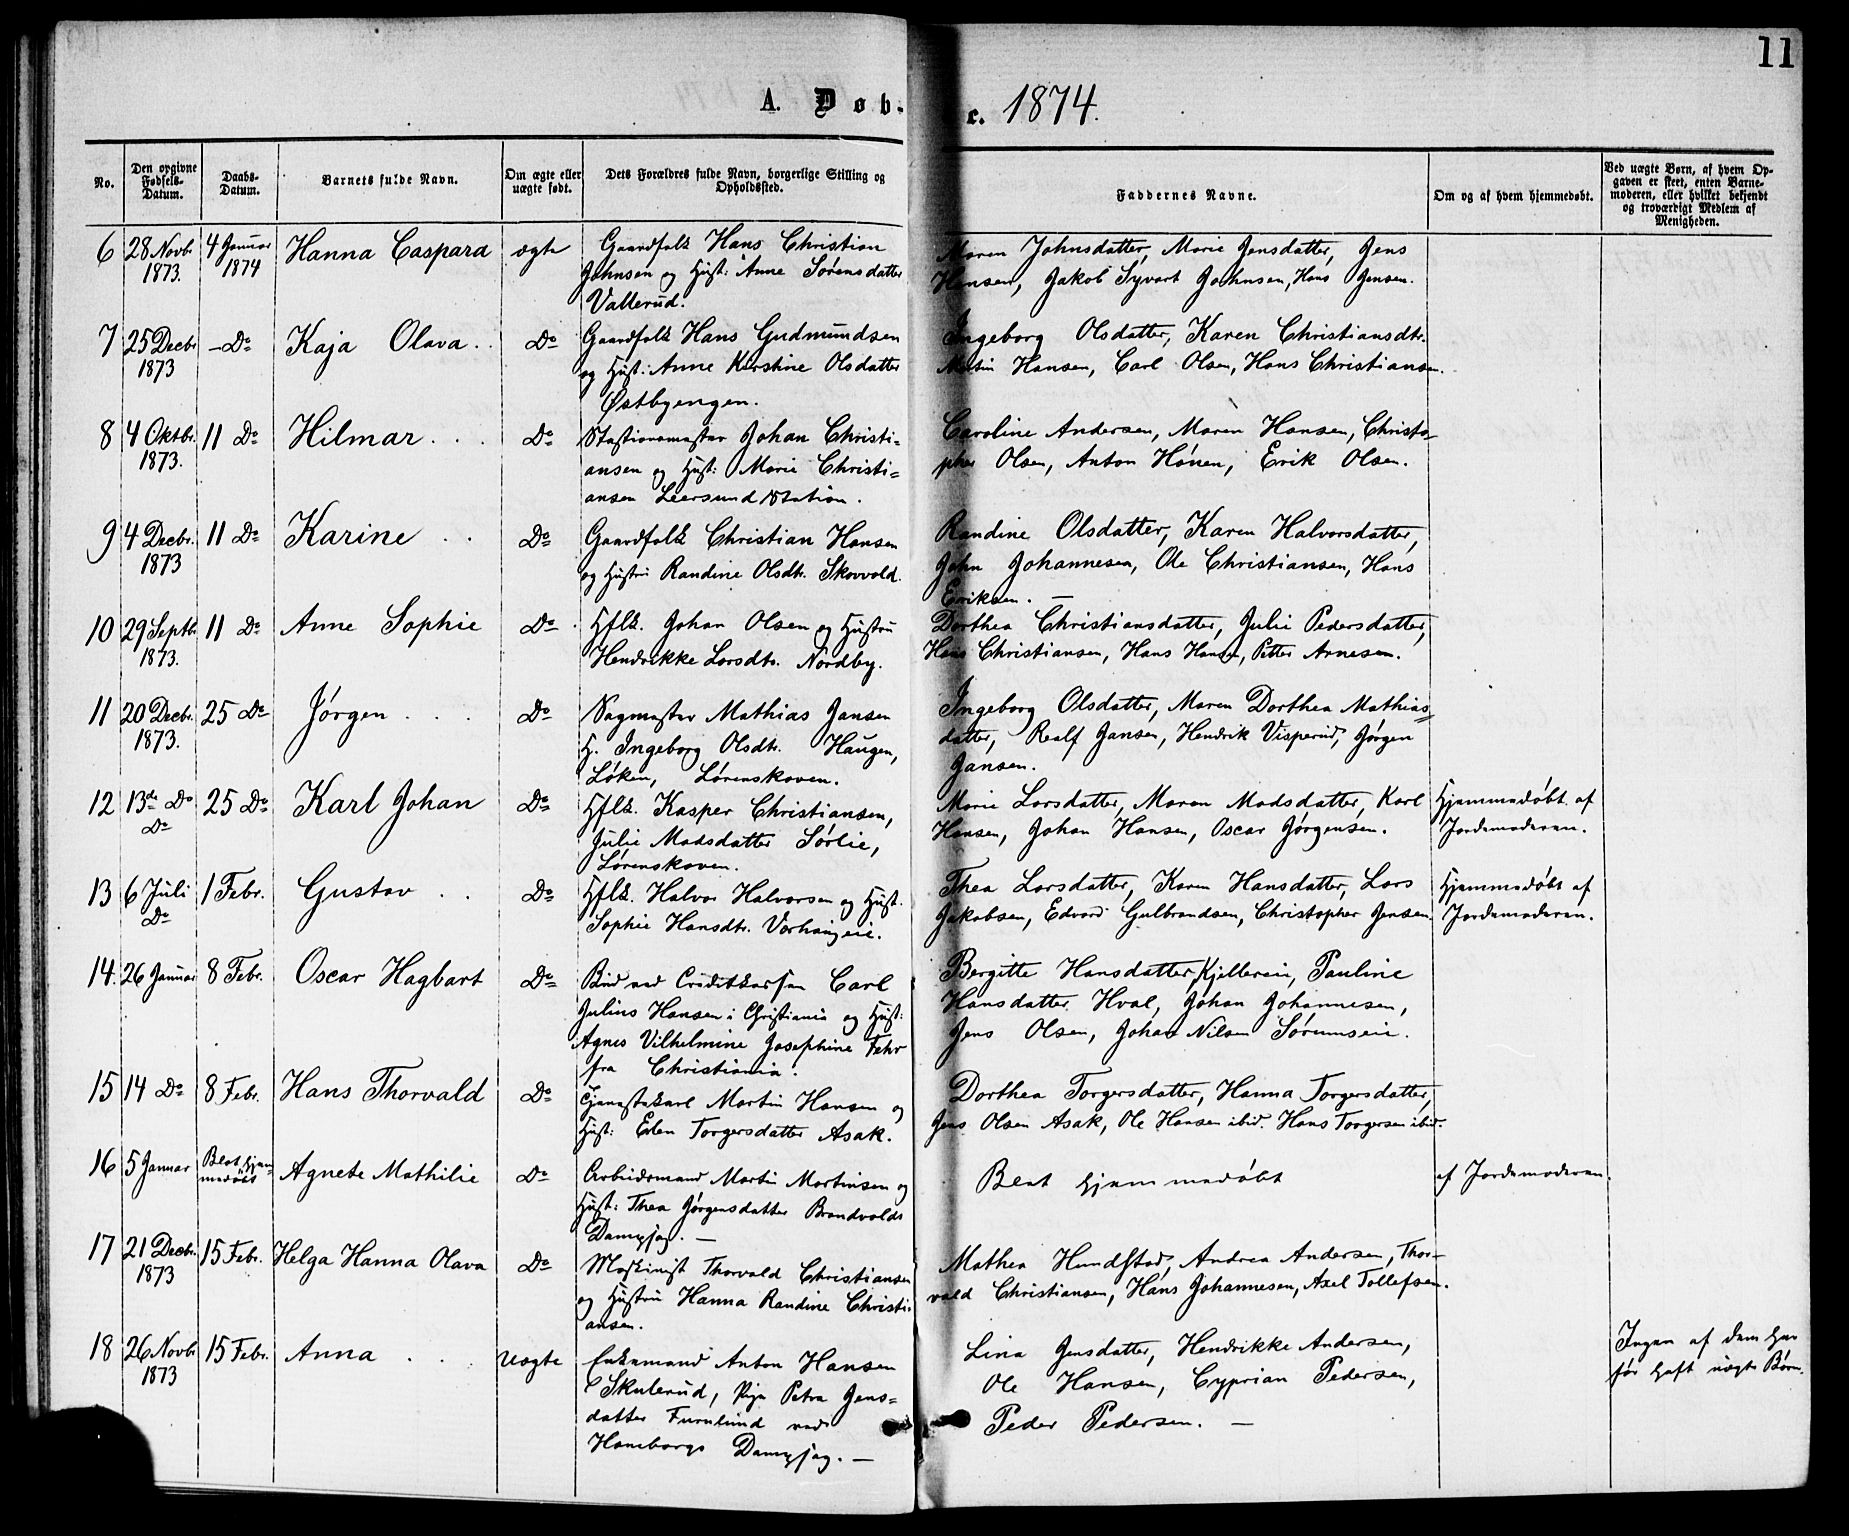 11
A. Døb- c. 1874.
No.
Den opgivne Fødsels-Datum.
Daabs-Datum.
Barnets fulde Navn.
Om ægte eller uægte født.
Dets Forældres fulde Navn, borgerlige Stilling og Opholdssted.
Faddernes Navne.
Om og af hvem hjemmedøbt.
Ved uægte Børn, af hvem Op-
gaven er skeet, enten Barne-
moderen, eller hvilket bekjendt
og troværdigt Medlem af
Menigheden.
6 28 Novbr 1873. 4 Januar 1874 Hanna Caspara ægte
Gaardfolk Hans Christian
Johnsen og Hust: Anne Sørensdatter
Vallerud.
Maren Johnsdatter, Marie Jensdatter, Jens
Hansen, Jakob Syvert Johnsen, Hans Jensen.
7 25 Decbr 1873 - Do Kaja Olava. Do
Gaardfolk Hans Gudmundsen
og Hust: Anne Kirstine Olsdatter
Østbyengen.
Ingeborg Olsdatter, Karen Christiansdtr.
Martin Hansen, Carl Olsen, Hans Christiansen.
8 4 Oktbr. 1873. 11 Do Hilmar. Do
Stationsmester Johan Christi-
ansen og Hust: Marie Christi-
ansen Leersund Station.
Caroline Andersen, Maren Hansen, Christo-
pher Olsen, Anton Hønen, Erik Olsen.
9 4 Decbr. 1873 11 Do Karine Do
Gaardfolk Christian Hansen
og Hustru Randine Olsdtr. Skovvold.
Randine Olsdatter, Karen Halvorsdatter,
John Johannesen, Ole Christiansen, Hans
Eriksen. —
10 29 Septbr 1873. 11 Do Anne Sophie Do
Hflk. Johan Olsen og Hustru
Hendrikke Larsdtr. Nordby.
Dorthea Christiansdatter, Julie Pedersdatter,
Hans Christiansen, Hans Hansen, Petter Arnesen.
11 20 Decbr. 1873. 25 Do Jørgen Do
Sagmester Mathias Jansen
H. Ingeborg Olsdtr. Haugen,
Løken, Lørenskoven.
Ingeborg Olsdatter, Maren Dorthea Mathias-
datter, Realf Jansen, Hendrik Visperud, Jørgen
Jansen.
12 13de Do Do 25 Do Karl Johan Do
Hflk. Kasper Christiansen,
Julie Madsdatter Sørlie,
Lørenskoven.
Marie Larsdatter, Maren Madsdatter, Karl
Hansen, Johan Hansen, Oscar Jørgensen.
Hjemmedøbt af
Jordemoderen.
13 6 Juli Do 1 Febr. Gustav Do
Hflk. Halvor Halvorsen og Hust.
Sophie Hansdtr. Vorhaugeie.
Thea Larsdatter, Karen Hansdatter, Lars
Jakobsen, Edvard Gulbrandsen, Christopher Jensen.
Hjemmedøbt af
Jordemoderen.
14. 26 Januar 8 Febr. Oscar Hagbart Do
Bud ved Creditkassen Carl
Julius Hansen i Christiania og Hust:
Agnes Vilhelmine Josephine Fehr
fra Christiania.
Bergitte Hansdatter, Kjellereie, Pauline
Hansdatter Hval, Johan Johannesen,
Jens Olsen, Johan Nilsen Sørumseie.
15 14 Do 8 Febr. Hans Thorvald Do
Tjenestekarl Martin Hansen og
Hust: Elen Torgersdatter Asak.
Dorthea Torgersdatter, Hanna Torgersdatter,
Jens Olsen Asak, Ole Hansen ibid. Hans Torgersen ibid.
16 5 Januar Blot hjem-
medøbt Agnete Mathilie Do
Arbeidsmand Martin Martinsen og
Hust: Thea Jørgensdatter Brandvolds
Dampsag. —
Blot hjemmedøbt
af Jordemoderen.
17 21 Decbr. 1873 15 Febr. Helga Hanna Olava Do
Maskinist Thorvald Christiansen
og Hustru Hanna Randine Christi-
ansen.
Mathea Hundstad, Andrea Andersen, Thor-
vald Christiansen, Hans Johannesen, Axel Tollefsen.
18 26 Novbr 1873 15 Febr. Anna Uægte
Enkemand Anton Hansen
Skulerud, Pige Petra Jens-
datter Furulund ved
Haneborgs Dampsag. —
Lina Jensdatter, Hendrikke Andersen,
Ole Hansen, Cyprian Pedersen,
Peder Pedersen. —
Ingen af dem har
før haft uægte Børn.